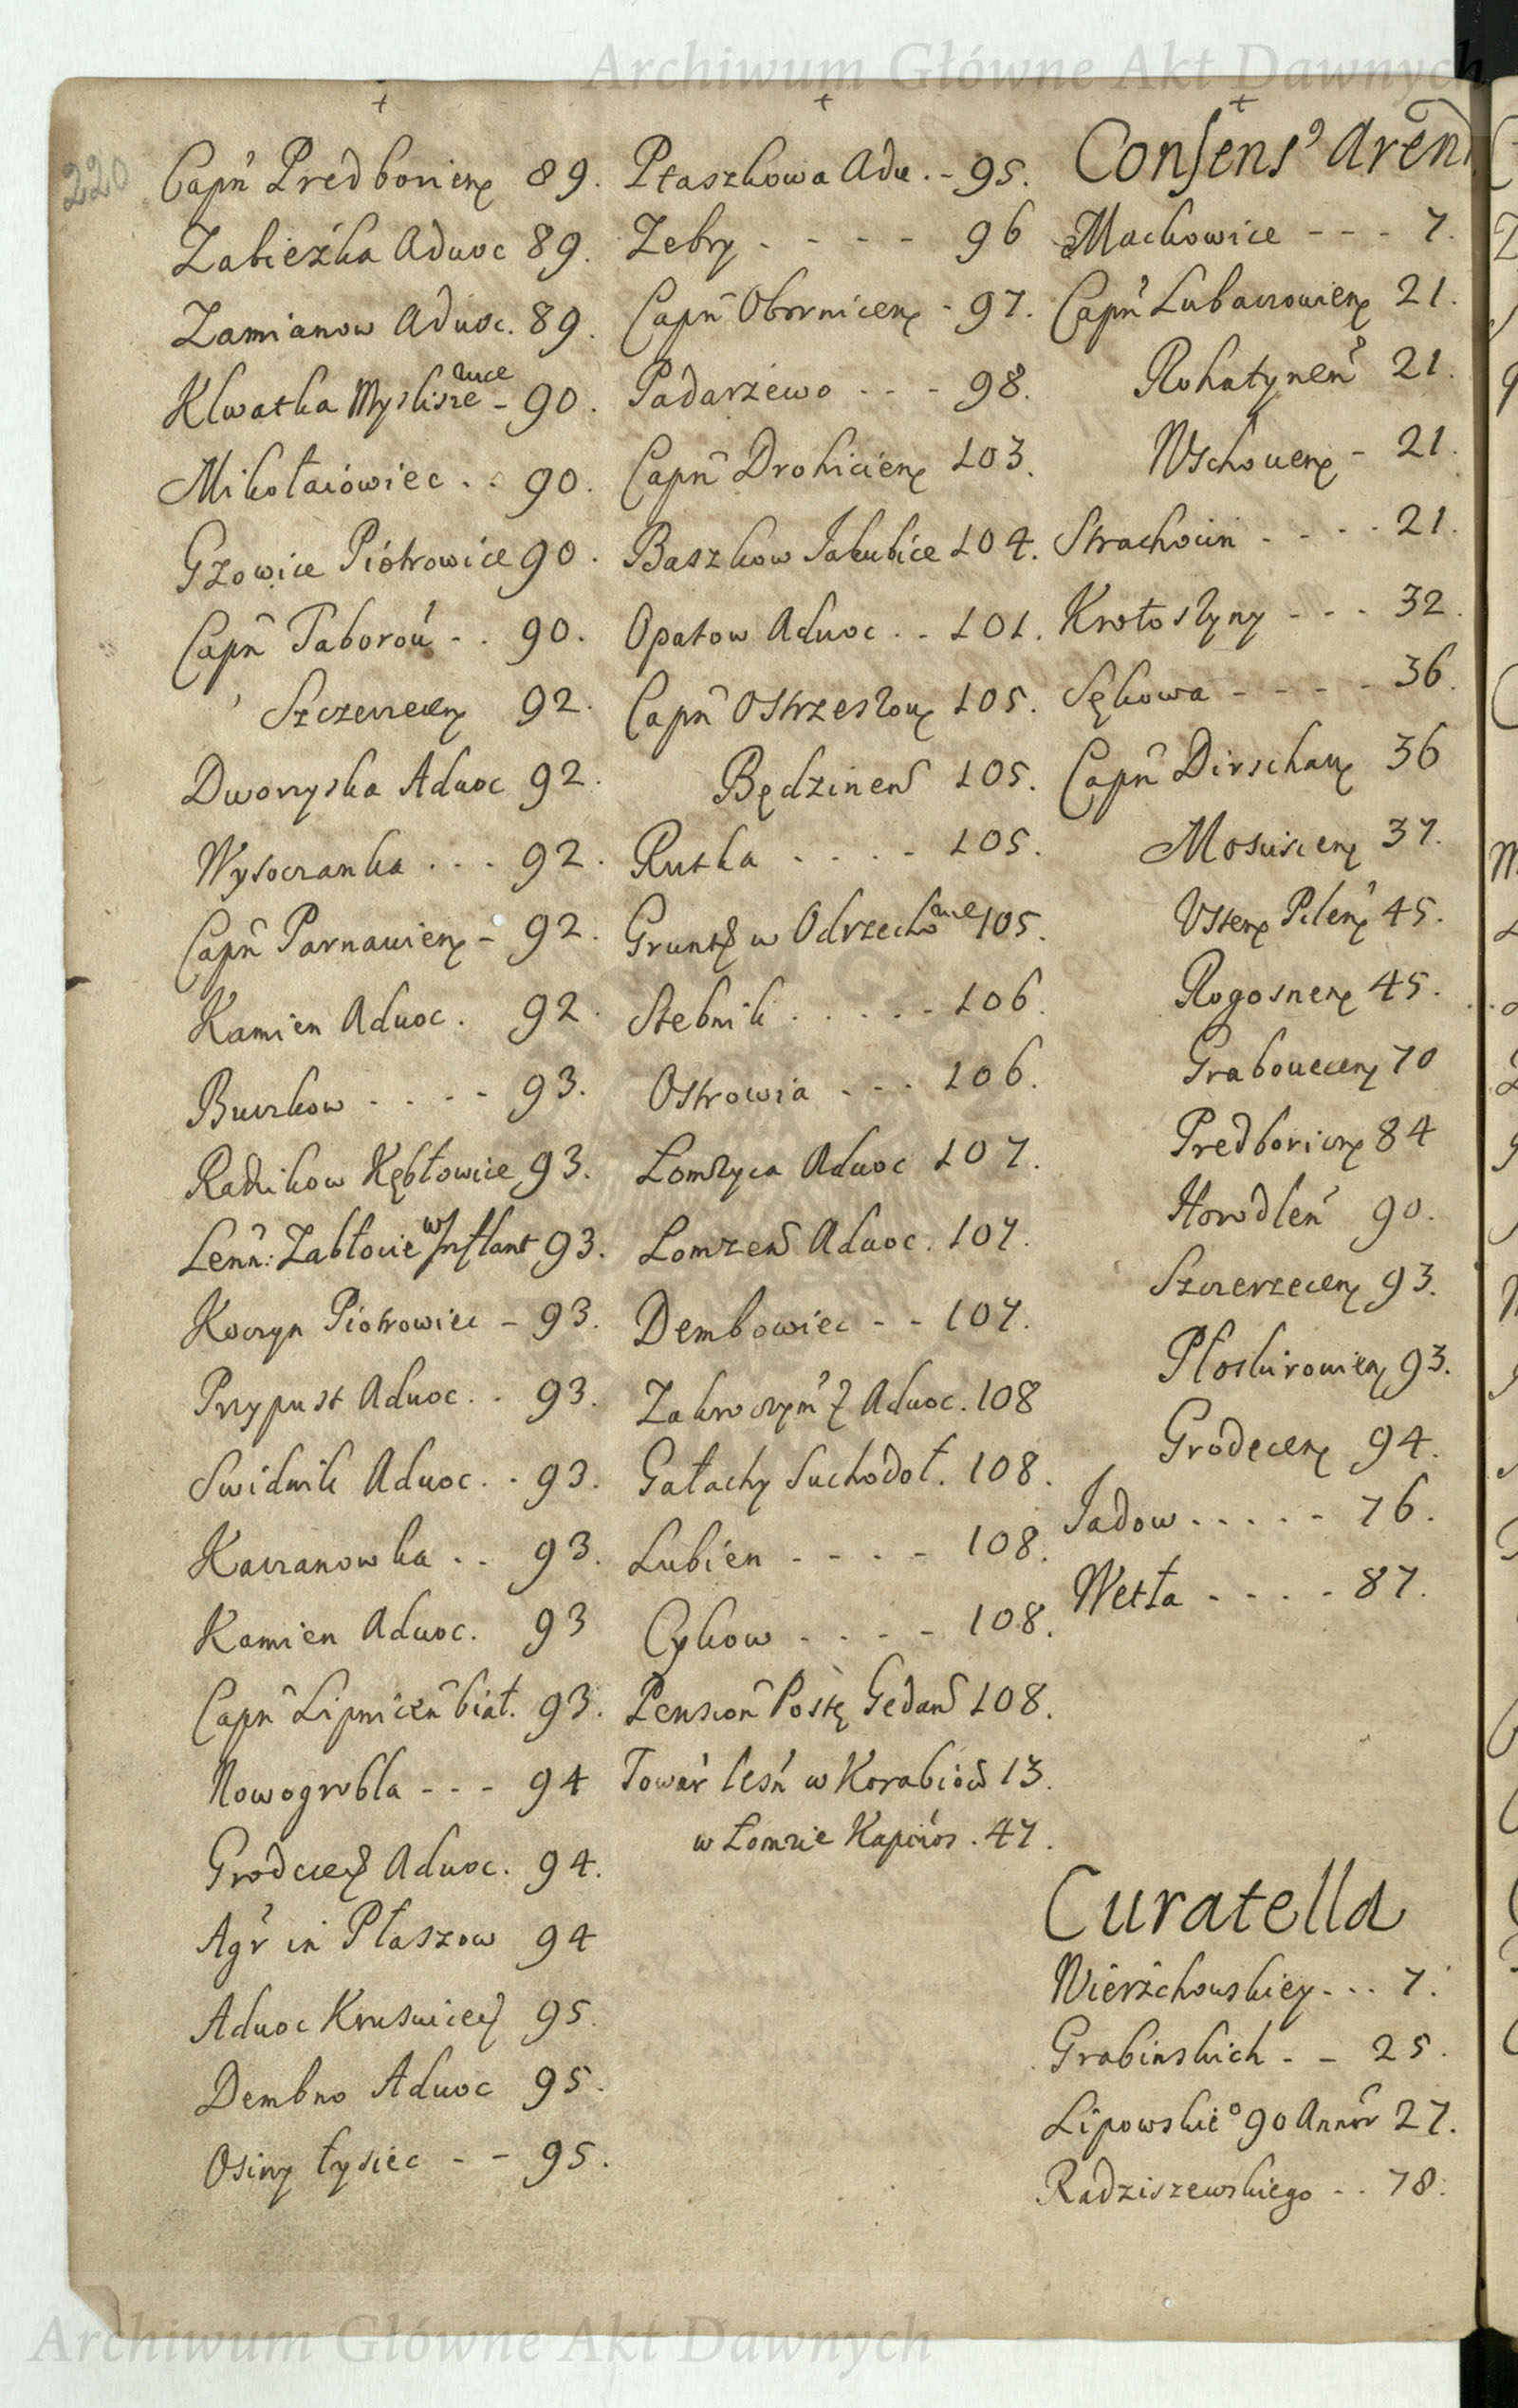 Archiwum Główne Akt Dawnych
220
+
Capn Predboriens 89.
Zabieżka Advoc 89.
Zamianow Advoc. 89.
Klwatka Myslisze - 90.
Mikołaiówiec . . 90.
Gzowice Piótrowice 90.
Capn Taborów . . 90.
92.
Dworzyska Advoc 92.
Wysoczanka . . . 92.
Capn Parnaviens - 92.
Kamien Advoc. 92.
Buczkow . . - - 93.
Radlikow Kębłowice 93.
Lenn: Zabłocie w Inflant 93.
Koczyn Piotrowiec - 93.
Przypust Advoc. . 93.
Swidnik Advoc. . 93.
Kaczanowka . . 93.
Kamien Advoc. 93
Capn Lipnicen biał. 93.
Nowogrobla - - - 94
Advoc. 94.
Agr in Płaszow 94
Advoc 95.
Dembno Advoc 95.
Osiny łysiec - - 95.
+
Ptaszkowa Adv. - 95.
Zebry - - - - 96
Capn Obornicens - 97.
Padarżewo - - - 98.
Capn Drohiciens 103.
Baszkow Jakubice 104.
Opatow Advoc . . 101.
Capn Ostrzeszov 105.
Będzinens 105.
Rutka . . . - 105.
w 105.
Stebnik . . . . - 106.
Ostrowia - - - 106.
Łomzyca Advoc 107.
Lomzens Advoc. 107.
Dembowiec - - 107.
Advoc. 108
Gałachy Suchodoł. 108.
Lubien - - - - 108.
Cykow - - - - 108.
Pension Gedans 108.
Towar leśn w Korabiów 13.
w Łomzie . 47.
+
Consens9 Aren
Machowice - - - 7.
Capn Lubaczowiens 21.
Rohatynens 21.
Wschovens - 21.
Strachocin - - - - 21.
Krotoszyny - - - 32.
Sękowa - - - - 36.
Capn Dirschau 36
Mosciscens 37.
45.
Rogosnens 45.
Grabovecens 70
Predboriens 84
Horodlen 90.
Szczerzecens 93.
Płoskirowiens 93.
Grodecens 94.
Jadow . . . . - 76.
Wetła - - - - 87.
Curatella
Wierzchouskiey . . . 7.
Grabinskich - - 25.
Lipowskie° 90 Annor 27.
Radziszewskiego . . 78.
Archiwum Główne Akt Dawnych